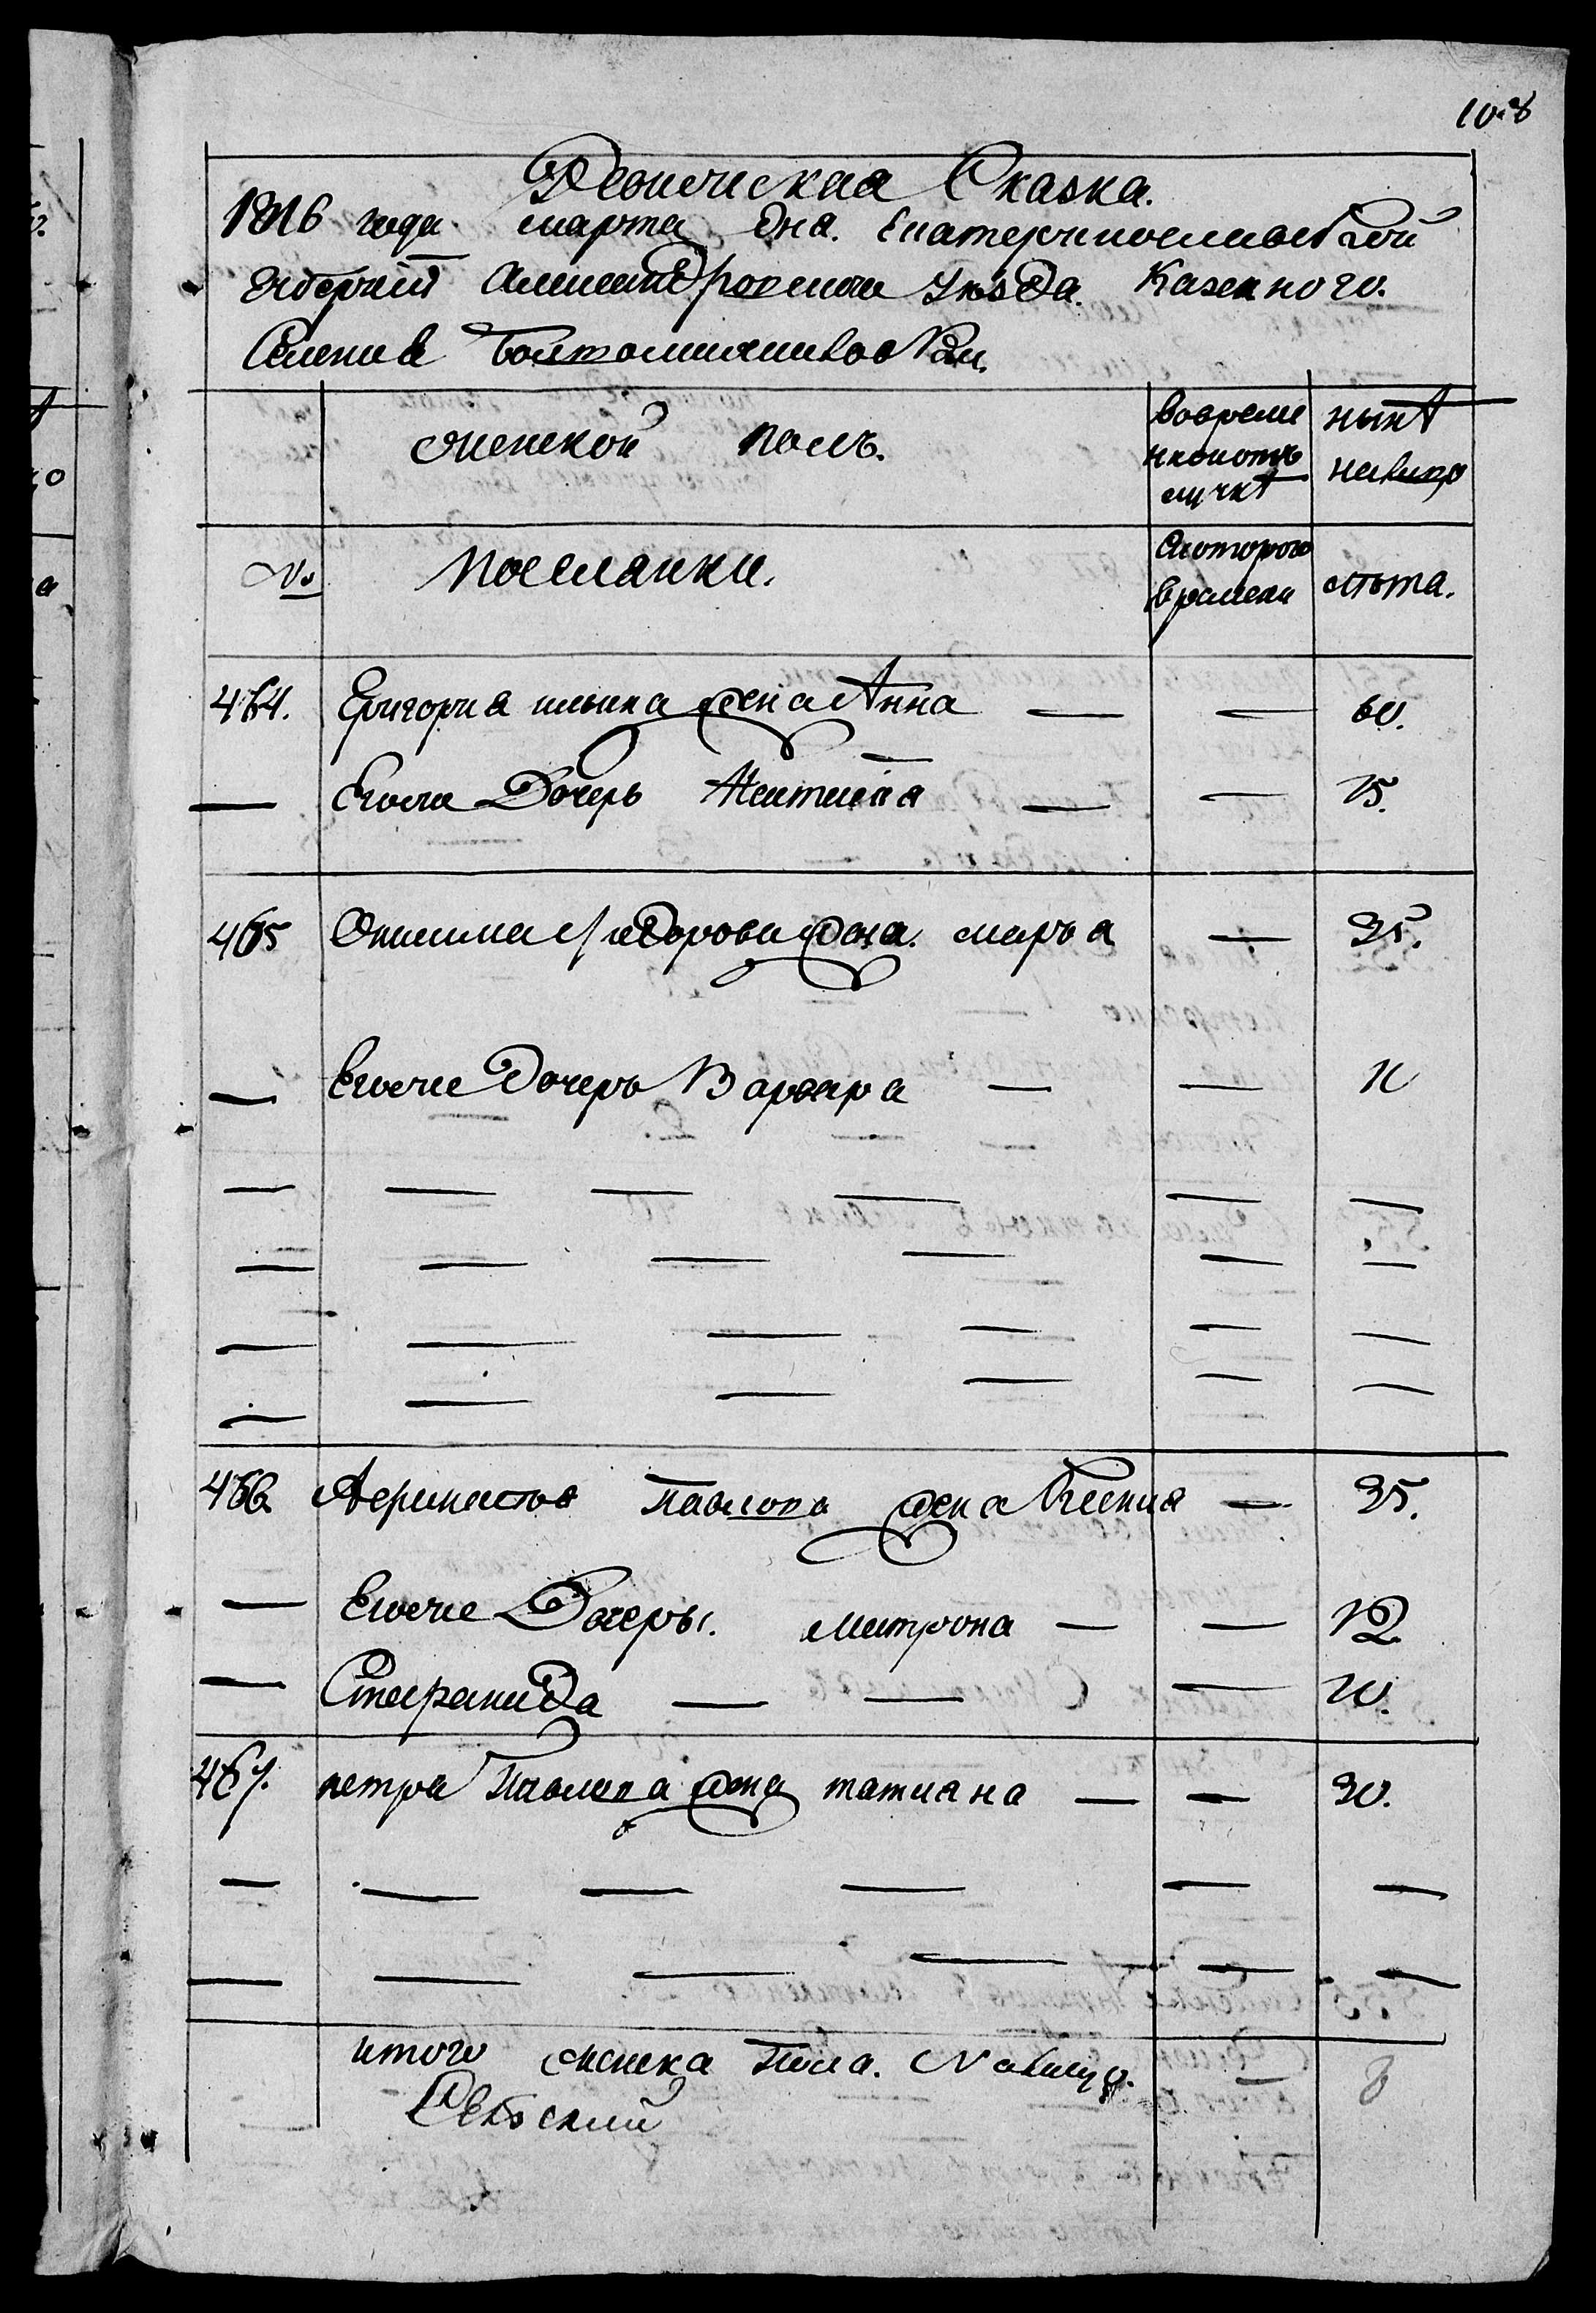 108
Ревисская Сказка.
1816 года марта дня. Екатеринославской
губернии Александровского уезда. Казенного.
Селения
женской полъ.
вовремя
неявотлучкѣ
нынѣ
налицо
№
поселянки.
скоторого
времени
лѣта.
464. Григория ильина жена Анна — — 60.
— Егоже Дочерь — — 15.
465 Онисима федорова жена. марья — 35.
— Егоже Дочерь Варвара — — 11
— — — — — —
— — — — — —
— — — — — —
— — — — — —
466 Павлова жена Ксения — 35.
— Егоже Дочеры. матрона — — 12
— Стефанида — — — 10.
467. петра Павлова жена татиана — — 30.
— — — — — —
— — — — — —
итого женска пола. Налицо. — 8